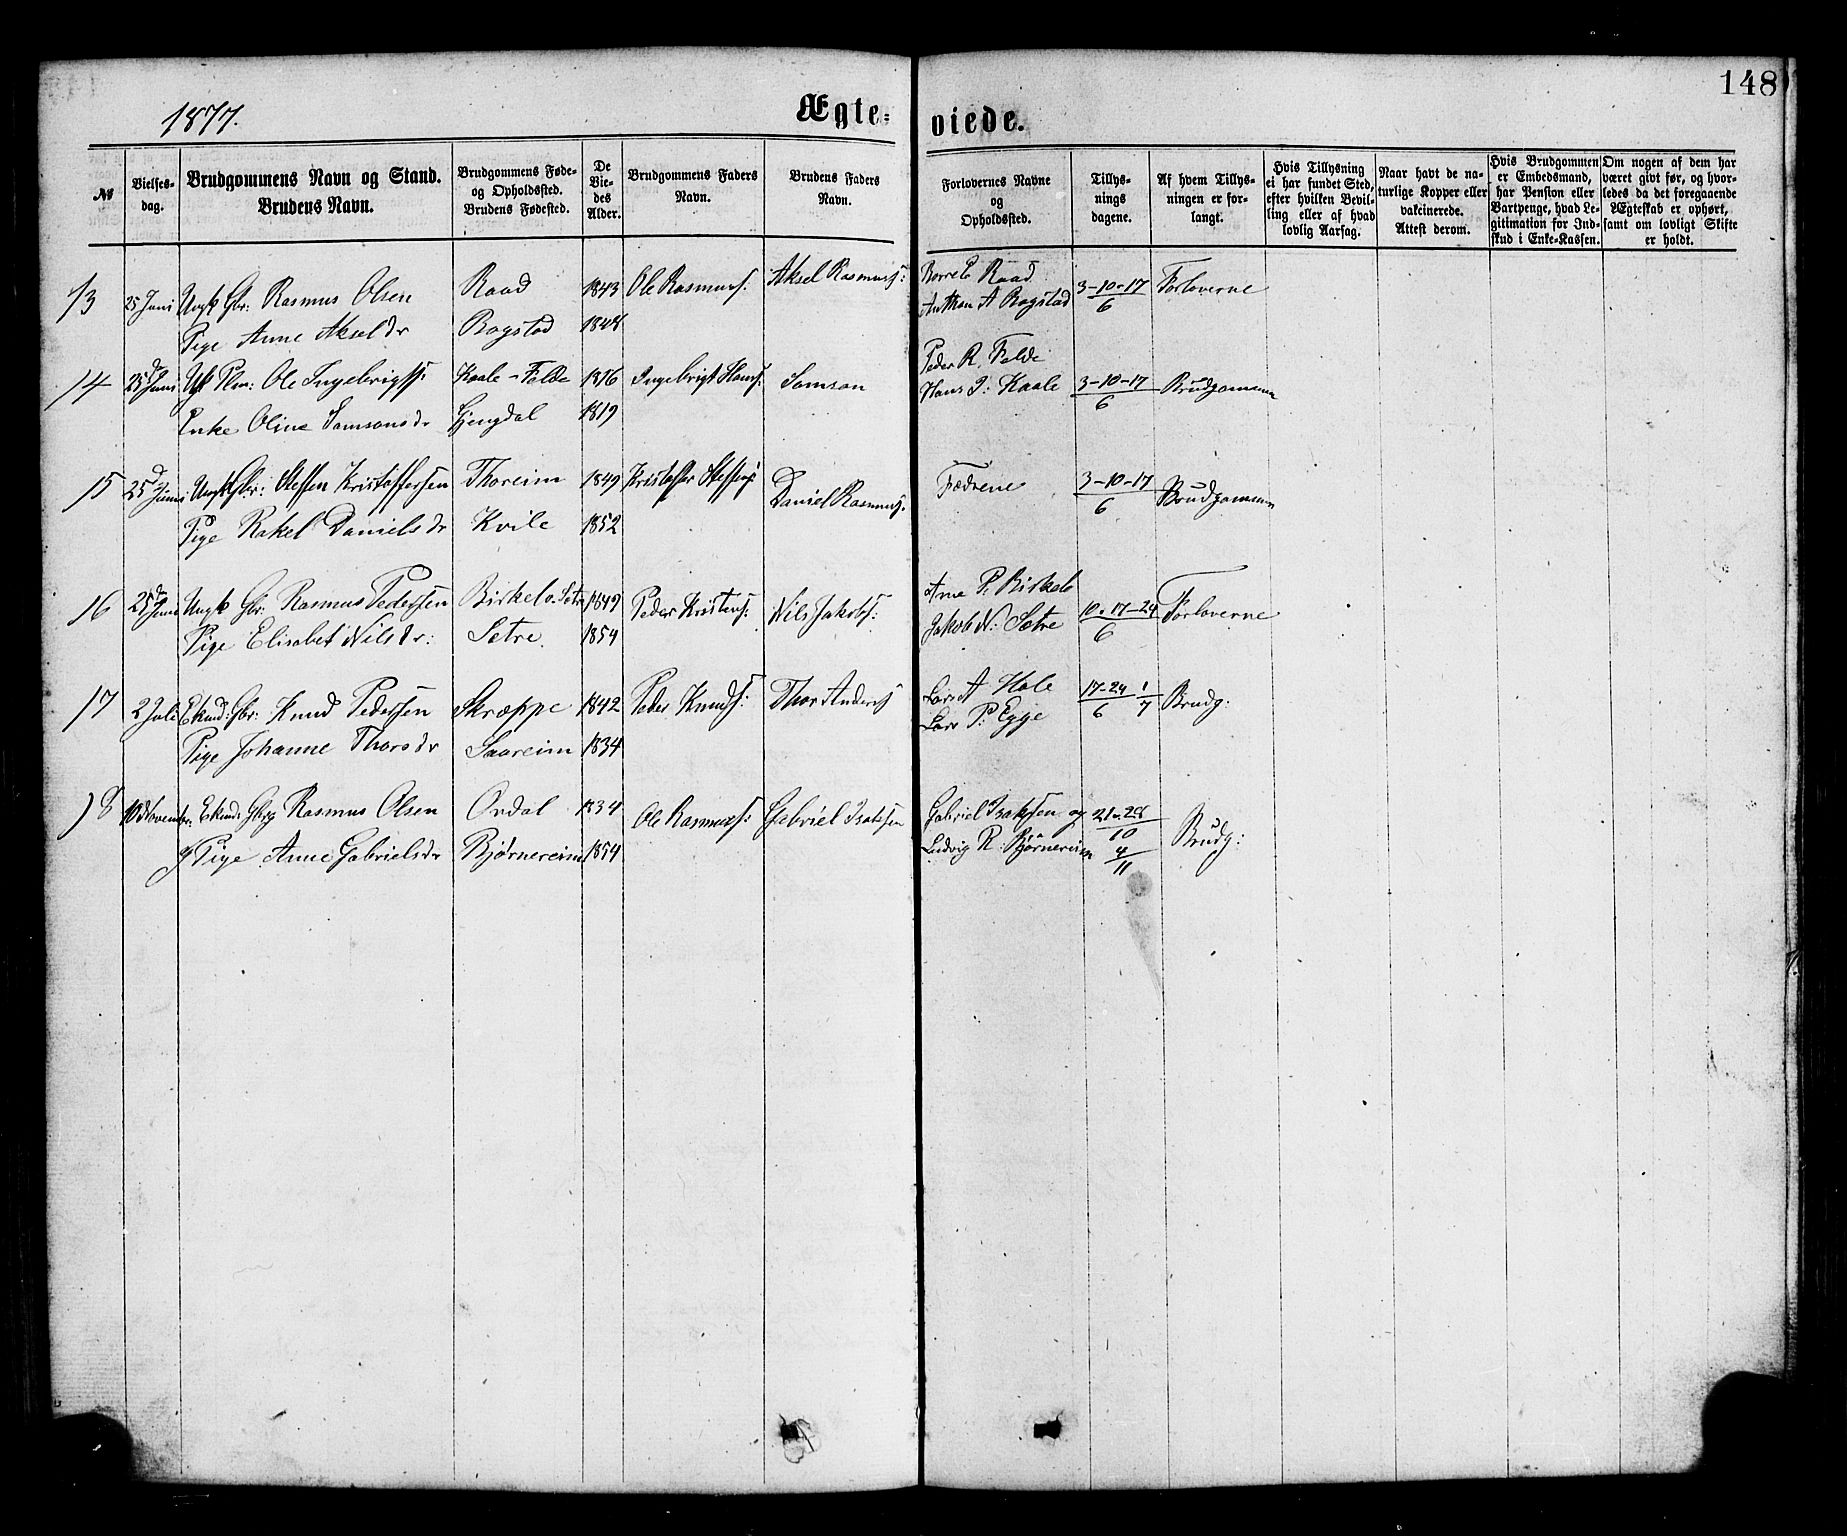 148
1877.
Ægte= viede.
No
Vielses-
dag.
Brudgommens Navn og Stand.
Brudens Navn.
Brudgommens Føde-
og Opholdssted.
Brudens Fødested.
De
Vie-
des
Alder.
Brudgommens Faders
Navn.
Brudens Faders
Navn.
Forlovernes Navne
og
Opholdssted.
Tillys-
nings
dagene.
Af hvem Tillys-
ningen er for-
langt.
Hvis Tillysning
ei har fundet Sted,
efter hvilken Bevil-
ling eller af hvad
lovlig Aarsag.
Naar havt de na-
turlige Kopper eller
vakcinerede.
Attest derom.
Hvis Brudgommen
er Embedsmand,
har Pension eller
Vartpenge, hvad Le-
gitimation for Ind-
skud i Enke-Kassen.
Om nogen af dem har
været givt før, og hvor-
ledes da det foregaaende
Ægteskab er ophørt,
samt om lovligt Skifte
er holdt.
13 25 Juni Ungk Gbr: Rasmus Olsen Raad 1843 Ole Rasmuss. Aksel Rasmuss: Raad 3-10-17 Forloverne
Pige Anne Akseldr Bogstad 1848 Anthon A Bogstad 6
14 25 Juni Plm: Ole Ingebrigts: Kaale-Felde 1816 Ingebrigt Hans: Samson Peder R. Felde 3-10-17 Brudgommen
Enke Oline Samsonsdr Gjengdal 1819 Hans I: Kaale 6
15 25 Juni Ungk Gbr: Steffen Kristoffersen Thoreim 1849 Kristoffer Steffens: Daniel Rasmuss. Fædrene 3-10-17 Brudgommen
Pige Rakel Danielsdr Kvile 1852 6
16 25 Juni Ungk Gbr: Rasmus Pedersen Birkelo.Sætre 1849 Peder Kristens: Nils Jakobs: Arne P. Birkelo 10-17-24 Forloverne
Pige Elisabet Nilsdr: Setre. 1854 Jakob N: Sætre 6
17 2 Juli Ekmd: Gbr: Knud Pedersen Skrøppe 1842 Peder Knuds: Thor Anders Lars A Hole 17-24 1 Brudg:
Pige Johanne Thorsdr Saareim 1834 Lars P: Egge 6 7
18 10 November: Ekmd: Gbrg Rasmus Olsen Ordal 1834 Ole Rasmuss: Gabriel Isaksen Gabriel Isaksen og 21-28 Brudg:
g Pige Anne Gabrielsdr Bjørnereim 1854 Ludvig R. Bjørnereim 10
4
11